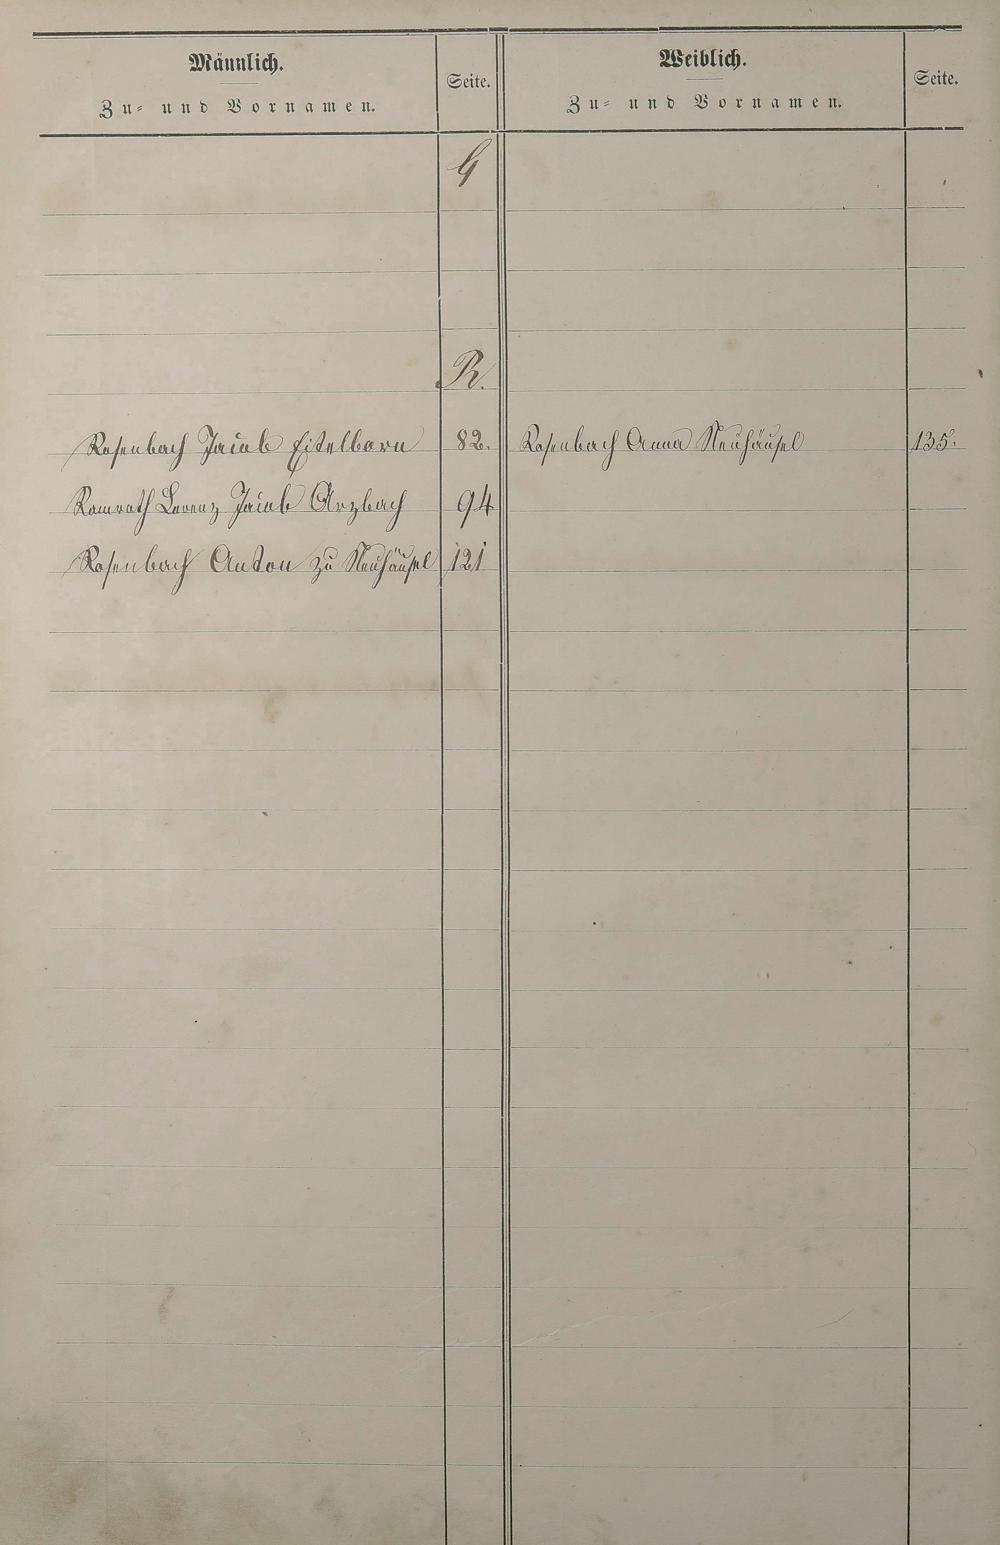 Männlich.
Zu- und Vornamen.
Seite.
Weiblich.
Zu- und Vornamen.
Seite.
R.
Rosenbach Jacob Eitelborn 82. Rosenbach Anna Neuhäusel 135.
Romroth Lorenz Jacob Arzbach 94
Rosenbach Anton zu Neuhäusel 121